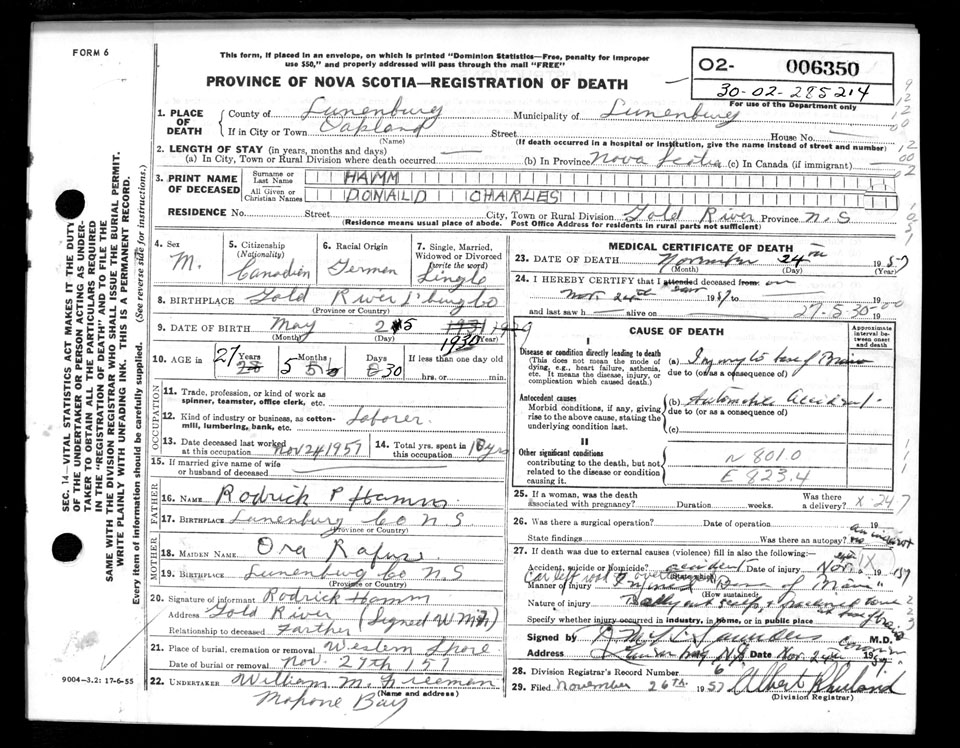 FORM 6
This form, if placed in an envelope, on which is printed "Dominion Statistics—Free, penalty for improper
use $50," and properly addressed will pass through the mail "FREE"
PROVINCE OF NOVA SCOTIA—REGISTRATION OF DEATH
02- 006350
30-02-285214
For use of the Department only
1. PLACE OF DEATH
County of Lunenburg Municipality of Lunenburg
If in City or Town Oakland Street House No.
(Name) (If death occurred in a hospital or institution, give the name instead of street and number)
2. LENGTH OF STAY (in years, months and days)
(a) In City, Town or Rural Division where death occurred (b) In Province Nova Scotia (c) In Canada (if immigrant)
3. PRINT NAME OF DECEASED
Surname or Last Name HAMM
All Given or Christian Names DONALD CHARLES
RESIDENCE No. Street City, Town or Rural Division Gold River Province N.S
(Residence means usual place of abode. Post Office Address for residents in rural parts not sufficient)
4. Sex M.
5. Citizenship (Nationality) Canadien
6. Racial Origin German
7. Single, Married, Widowed or Divorced (write the word) Single
8. BIRTHPLACE Gold River L'burg Co
(Province or Country)
9. DATE OF BIRTH May 25 1931 1929
(Month) (Day) (Year)
1930
10. AGE in 27 Years 5 Months 30 Days If less than one day old
hrs. or min.
OCCUPATION
11. Trade, profession, or kind of work as
spinner, teamster, office clerk, etc.
12. Kind of industry or business, as cotton-
mill, lumbering, bank, etc. Laborer
13. Date deceased last worked
at this occupation Nov 24 1957
14. Total yrs. spent in
this occupation 10 yrs
15. If married give name of wife
or husband of deceased
FATHER
16. NAME Rodrick P Hamm
17. BIRTHPLACE Lunenburg Co N.S.
(Province or Country)
MOTHER
18. MAIDEN NAME Ora Rafuse
19. BIRTHPLACE Lunenburg Co N.S
(Province or Country)
20. Signature of informant Rodrick Hamm
Address Gold River (Signed W M F)
Relationship to deceased Farther
21. Place of burial, cremation or removal Western Shore
Date of burial or removal Nov. 27th 157
22. UNDERTAKER William M. Freeman
(Name and address)
Mahone Bay
9004-3.2: 17-6-55
MEDICAL CERTIFICATE OF DEATH
23. DATE OF DEATH November 24th 1957
(Month) (Day) (Year)
24. I HEREBY CERTIFY that I attended deceased from saw on
Nov 24th 1957 to 19
and last saw h alive on 19
27-5-30-00
CAUSE OF DEATH
Approximate interval between onset and death
I
Disease or condition directly leading to death
(This does not mean the mode of
dying, e.g., heart failure, asthenia,
etc. It means the disease, injury, or
complication which caused death.)
(a) Injury to base of Brain
due to (or as a consequence of)
Antecedent causes
Morbid conditions, if any, giving
rise to the above cause, stating the
underlying condition last.
(b) Automobile Accident
due to (or as a consequence of)
(c)
II
Other significant conditions
contributing to the death, but not
related to the disease or condition
causing it.
N 801.0
E 823.4
25. If a woman, was the death
associated with pregnancy? Duration weeks. Was there a delivery?
X 247
26. Was there a surgical operation? Date of operation 19
State findings Was there an autopsy? no an inquest
27. If death was due to external causes (violence) fill in also the following:—
Accident, suicide or homicide? accident Date of injury Nov. 24th 1957
Car left road & overturned
Manner of injury
(How sustained)
Nature of injury
Specify whether injury occurred in industry, in home, or in public place
Signed by Saunders M.D.
Address N.S. Date Nov. 24th 1957
28. Division Registrar's Record Number 6
29. Filed November 26TH 1957
(Division Registrar)
SEC. 14—VITAL STATISTICS ACT MAKES IT THE DUTY
OF THE UNDERTAKER OR PERSON ACTING AS UNDER-
TAKER TO OBTAIN ALL THE PARTICULARS REQUIRED
IN THE "REGISTRATION OF DEATH" AND TO FILE THE
SAME WITH THE DIVISION REGISTRAR WHO SHALL ISSUE THE BURIAL PERMIT.
WRITE PLAINLY WITH UNFADING INK. THIS IS A PERMANENT RECORD.
Every item of information should be carefully supplied. (See reverse side for instructions.)